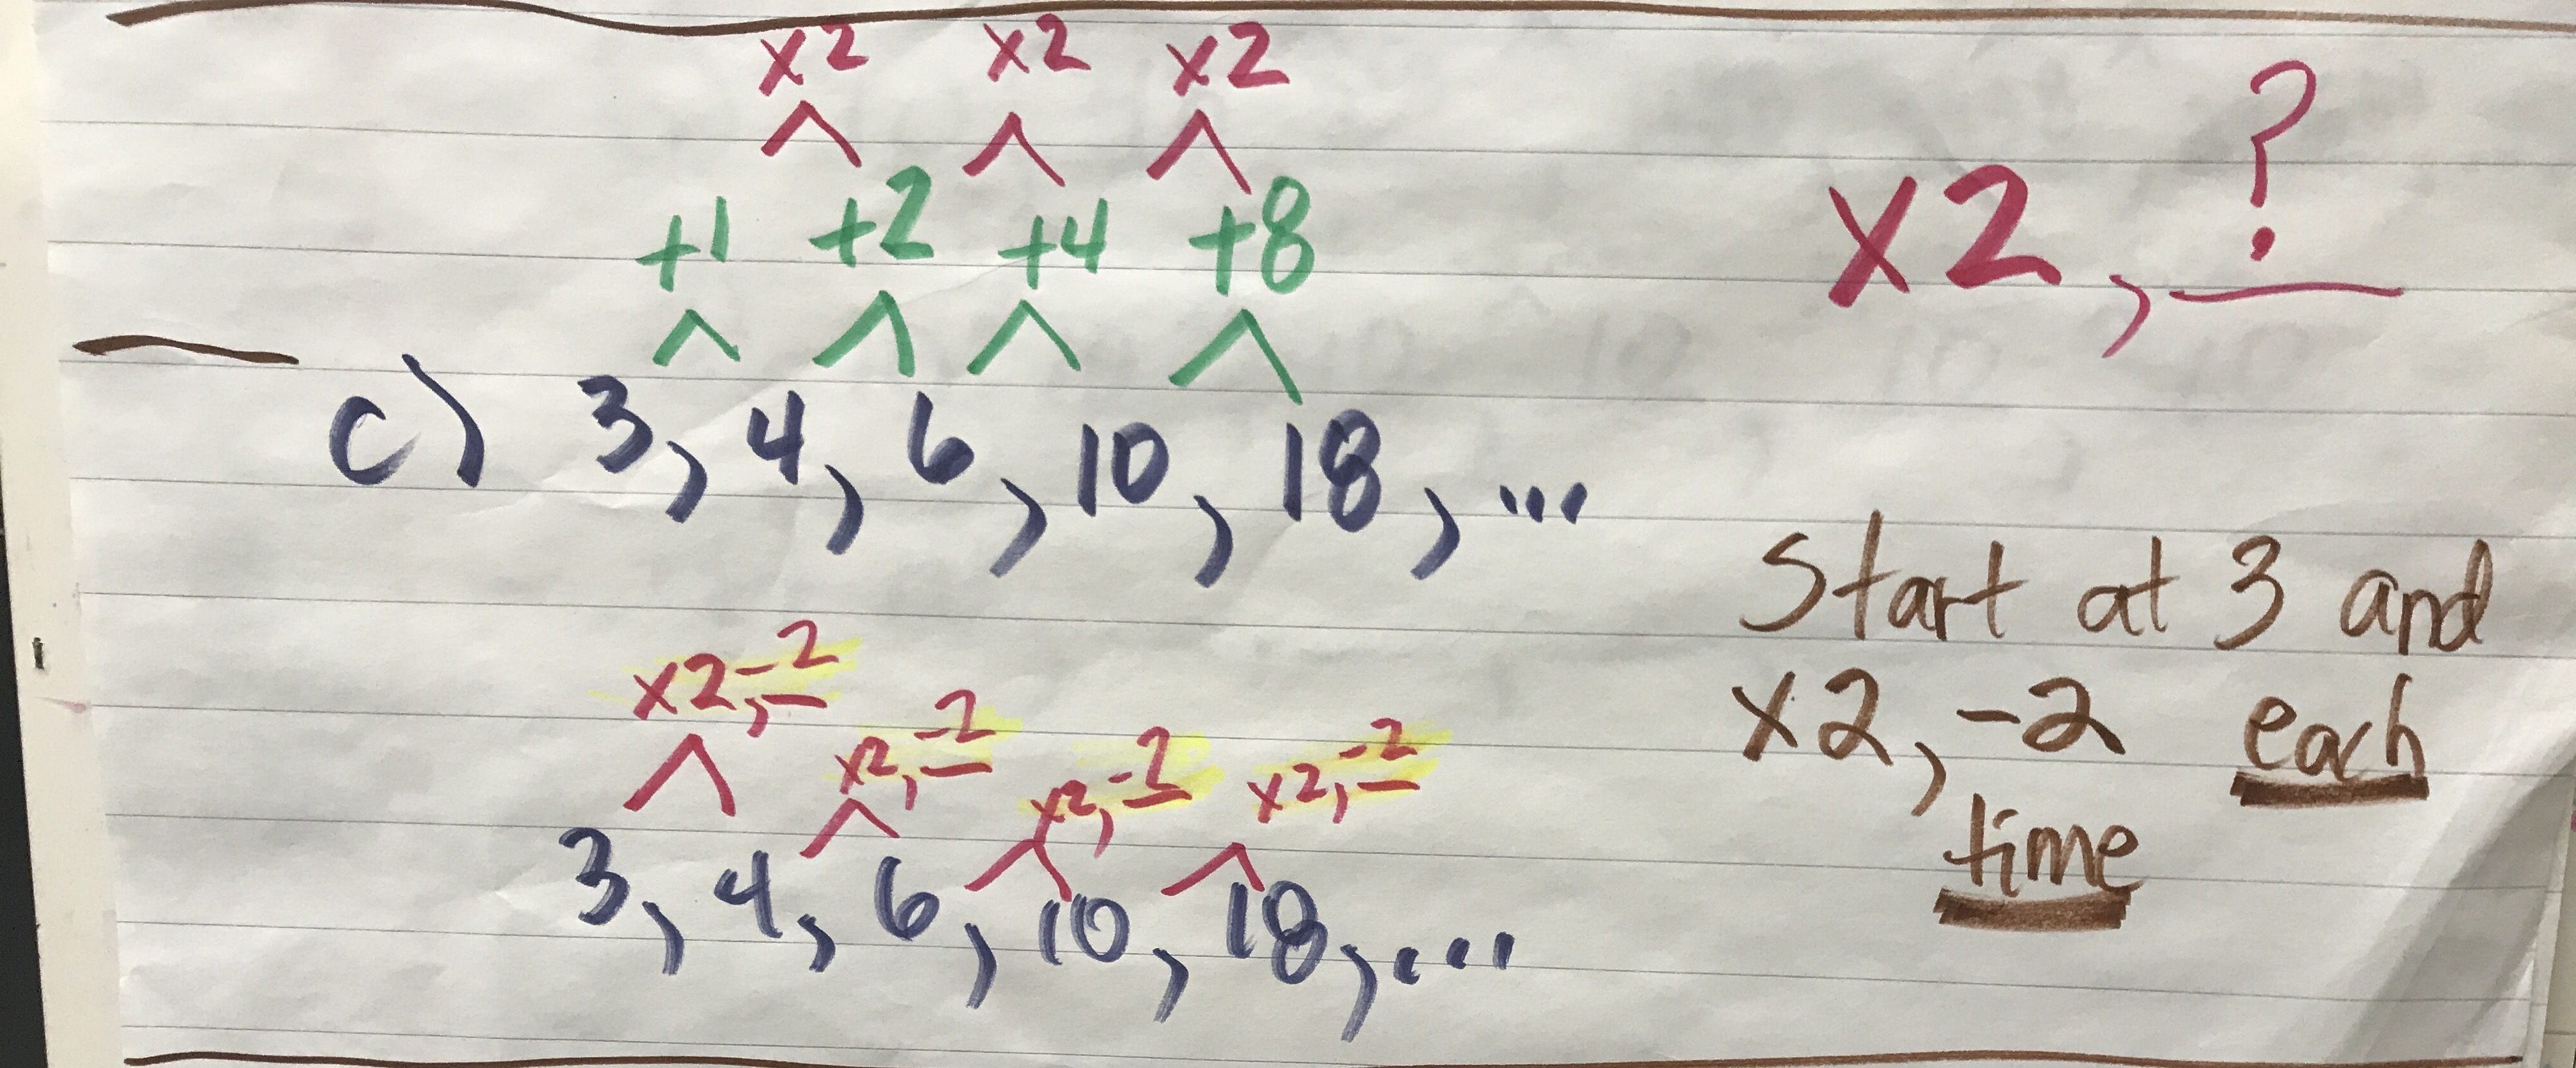 x2 x2 x2
+1 +2 +4 +8
x2, ?
c) 3, 4, 6, 10, 18, ...
x2, -2 x2, -2 x2, -2 x2, -2
3, 4, 6, 10, 18, ...
Start at 3 and
x2, -2 each
time